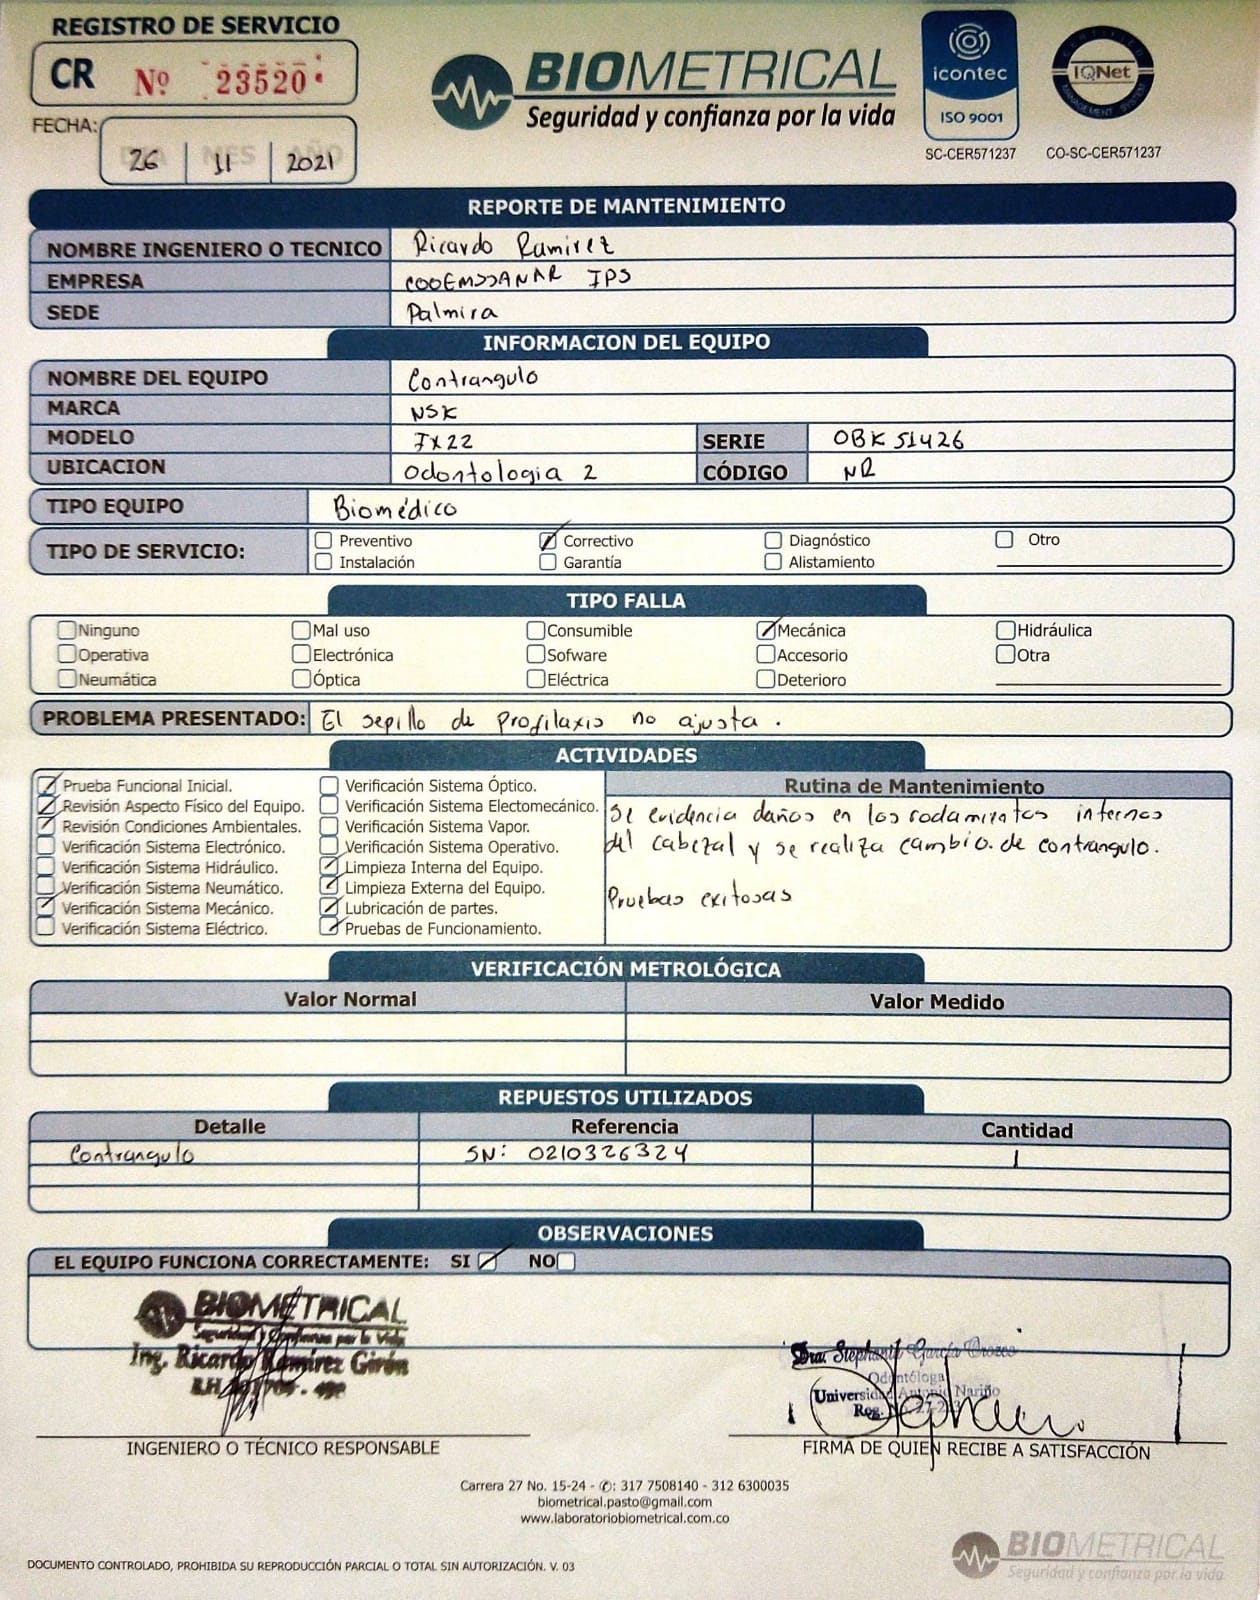 REGISTRO DE SERVICIO
CR Nº 23520
FECHA:
26 11 2021
BIOMETRICAL
Seguridad y confianza por la vida
icontec
ISO 9001
SC-CER571237
CERTIFIED
IQNet
MANAGEMENT SYSTEM
CO-SC-CER571237
REPORTE DE MANTENIMIENTO
NOMBRE INGENIERO O TECNICO Ricardo Ramirez
EMPRESA COOEMSSANAR IPS
SEDE Palmira
INFORMACION DEL EQUIPO
NOMBRE DEL EQUIPO Contrangulo
MARCA NSK
MODELO FX22 SERIE OBK51426
UBICACION Odontologia 2 CÓDIGO NR
TIPO EQUIPO Biomédico
TIPO DE SERVICIO: Preventivo Correctivo Diagnóstico Otro
Instalación Garantía Alistamiento
TIPO FALLA
Ninguno Mal uso Consumible Mecánica Hidráulica
Operativa Electrónica Sofware Accesorio Otra
Neumática Óptica Eléctrica Deterioro
PROBLEMA PRESENTADO: El sepillo de profilaxis no ajusta.
ACTIVIDADES
Prueba Funcional Inicial.
Revisión Aspecto Físico del Equipo.
Revisión Condiciones Ambientales.
Verificación Sistema Electrónico.
Verificación Sistema Hidráulico.
Verificación Sistema Neumático.
Verificación Sistema Mecánico.
Verificación Sistema Eléctrico.
Verificación Sistema Óptico.
Verificación Sistema Electomecánico.
Verificación Sistema Vapor.
Verificación Sistema Operativo.
Limpieza Interna del Equipo.
Limpieza Externa del Equipo.
Lubricación de partes.
Pruebas de Funcionamiento.
Rutina de Mantenimiento
Se evidencia daños en los rodamientos internos
del cabezal y se realiza cambio de contrangulo.
Pruebas exitosas
VERIFICACIÓN METROLÓGICA
Valor Normal Valor Medido
REPUESTOS UTILIZADOS
Detalle Referencia Cantidad
Contrangulo SN: 0210326324 1
OBSERVACIONES
EL EQUIPO FUNCIONA CORRECTAMENTE: SI NO
BIOMETRICAL
Seguridad y Confianza por la Vida
Ing. Ricardo Ramírez Girón
Dra. Stephania García Orozco
Odontóloga
Universidad Antonio Nariño
INGENIERO O TÉCNICO RESPONSABLE
FIRMA DE QUIEN RECIBE A SATISFACCIÓN
Carrera 27 No. 15-24 - ✆: 317 7508140 - 312 6300035
biometrical.pasto@gmail.com
www.laboratoriobiometrical.com.co
DOCUMENTO CONTROLADO, PROHIBIDA SU REPRODUCCIÓN PARCIAL O TOTAL SIN AUTORIZACIÓN. V. 03
BIOMETRICAL
Seguridad y confianza por la vida